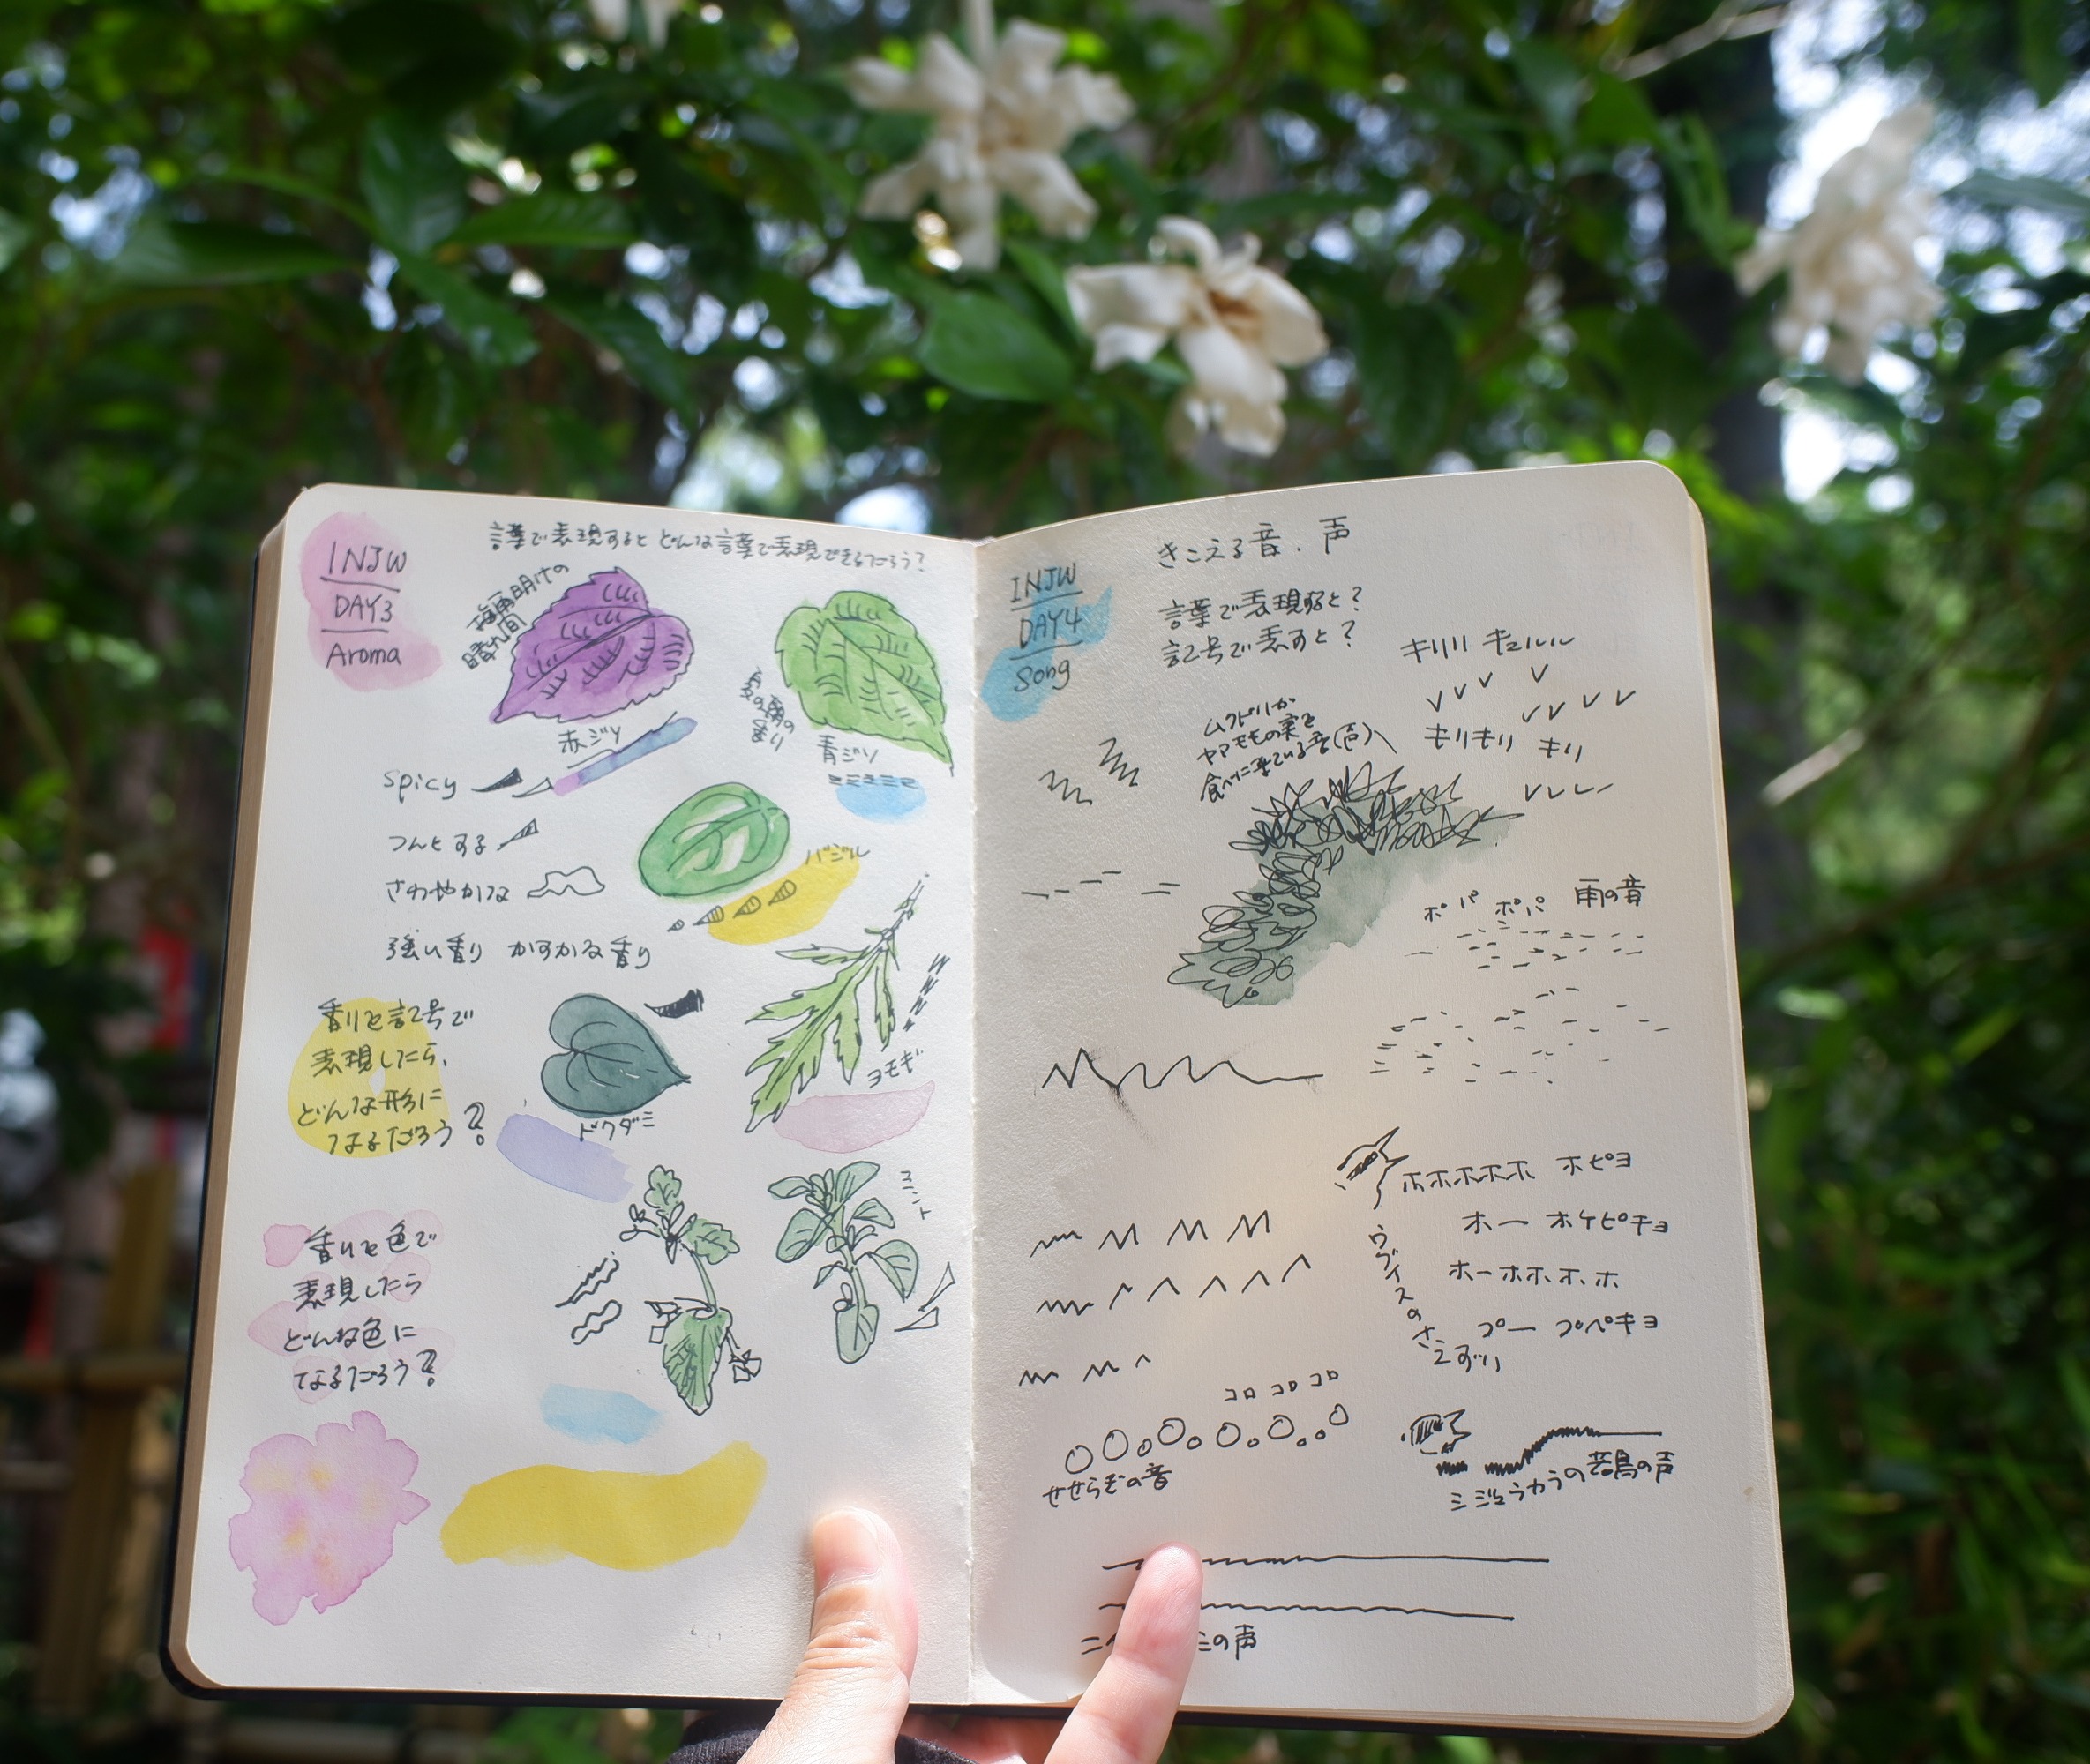 INJW
DAY3
Aroma
言葉で表現すると どんな言葉で表現できるだろう?
梅雨明けの
晴れ間
赤ジソ
夏の朝の
香り
青ジソ
spicy
つんとする
さわやかな
バジル
強い香り かすかな香り
香りを記号で
表現したら、
どんな形に
なるだろう?
ドクダミ
ヨモギ
ミント
香りを色で
表現したら
どんな色に
なるだろう?
INJW
DAY4
Song
きこえる音、声
言葉で表現すると?
記号で表すと?
キリリ キュルルル
ムクドリが
ヤマモモの実を
食べに来ている音(声)
キリキリ キリ
ポ パ ポパ 雨の音
ホホホホホ ホピヨ
ホー ホケピチョ
ホーホホ、ホ、ホ
プー プペキョ
ウグイスのさえずり
コロ コロ コロ
せせらぎの音
シジュウカラの若鳥の声
の声